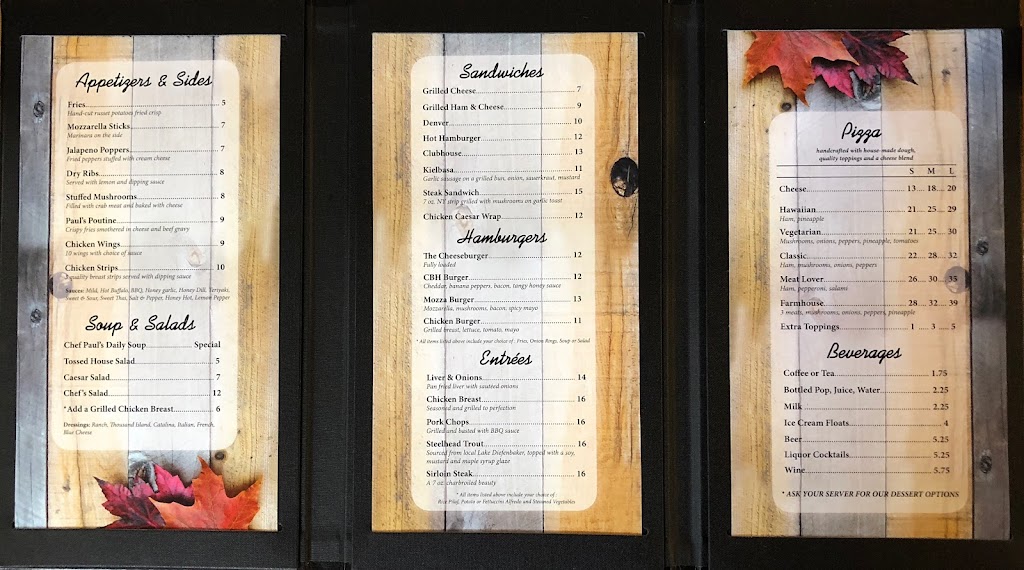 Appetizers & Sides
Fries 5
Hand-cut russet potatoes fried crisp
Mozzarella Sticks 7
Marinara on the side
Jalapeno Poppers 7
Fried peppers stuffed with cream cheese
Dry Ribs 8
Served with lemon and dipping sauce
Stuffed Mushrooms 8
Filled with crab meat and baked with cheese
Paul's Poutine 9
Crispy fries smothered in cheese and beef gravy
Chicken Wings 9
10 wings with choice of sauce
Chicken Strips 10
quality breast strips served with dipping sauce
Sauces: Mild, Hot Buffalo, BBQ, Honey garlic, Honey Dill, Teriyaki,
Sweet & Sour, Sweet Thai, Salt & Pepper, Honey Hot, Lemon Pepper
Soup & Salads
Chef Paul's Daily Soup Special
Tossed House Salad 5
Caesar Salad 7
Chef's Salad 12
*Add a Grilled Chicken Breast 6
Dressings: Ranch, Thousand Island, Catalina, Italian, French,
Blue Cheese
Sandwiches
Grilled Cheese 7
Grilled Ham & Cheese 9
Denver 10
Hot Hamburger 12
Clubhouse 13
Kielbasa 11
Garlic sausage on a grilled bun, onion, sauerkraut, mustard
Steak Sandwich 15
7 oz. NY strip grilled with mushrooms on garlic toast
Chicken Caesar Wrap 12
Hamburgers
The Cheeseburger 12
Fully loaded
CBH Burger 12
Cheddar, banana peppers, bacon, tangy honey sauce
Mozza Burger 13
Mozzarella, mushrooms, bacon, spicy mayo
Chicken Burger 11
Grilled breast, lettuce, tomato, mayo
* All items listed above include your choice of: Fries, Onion Rings, Soup or Salad
Entrées
Liver & Onions 14
Pan fried liver with sautéed onions
Chicken Breast 16
Seasoned and grilled to perfection
Pork Chops 16
Grilled and basted with BBQ sauce
Steelhead Trout 16
Sourced from local Lake Diefenbaker, topped with a soy,
mustard and maple syrup glaze
Sirloin Steak 16
A 7 oz. charbroiled beauty
* All items listed above include your choice of:
Rice Pilaf, Potato or Fettuccini Alfredo and Steamed Vegetables
Pizza
handcrafted with house-made dough,
quality toppings and a cheese blend
S M L
Cheese 13 .... 18 .... 20
Hawaiian 21 .... 25 .... 29
Ham, pineapple
Vegetarian 21 .... 25 .... 30
Mushrooms, onions, peppers, pineapple, tomatoes
Classic 22 .... 28 .... 32
Ham, mushrooms, onions, peppers
Meat Lover 26 .... 30 .... 35
Ham, pepperoni, salami
Farmhouse 28 .... 32 .... 39
3 meats, mushrooms, onions, peppers, pineapple
Extra Toppings 1 .... 3 .... 5
Beverages
Coffee or Tea 1.75
Bottled Pop, Juice, Water 2.25
Milk 2.25
Ice Cream Floats 4
Beer 5.25
Liquor Cocktails 5.25
Wine 5.75
* ASK YOUR SERVER FOR OUR DESSERT OPTIONS